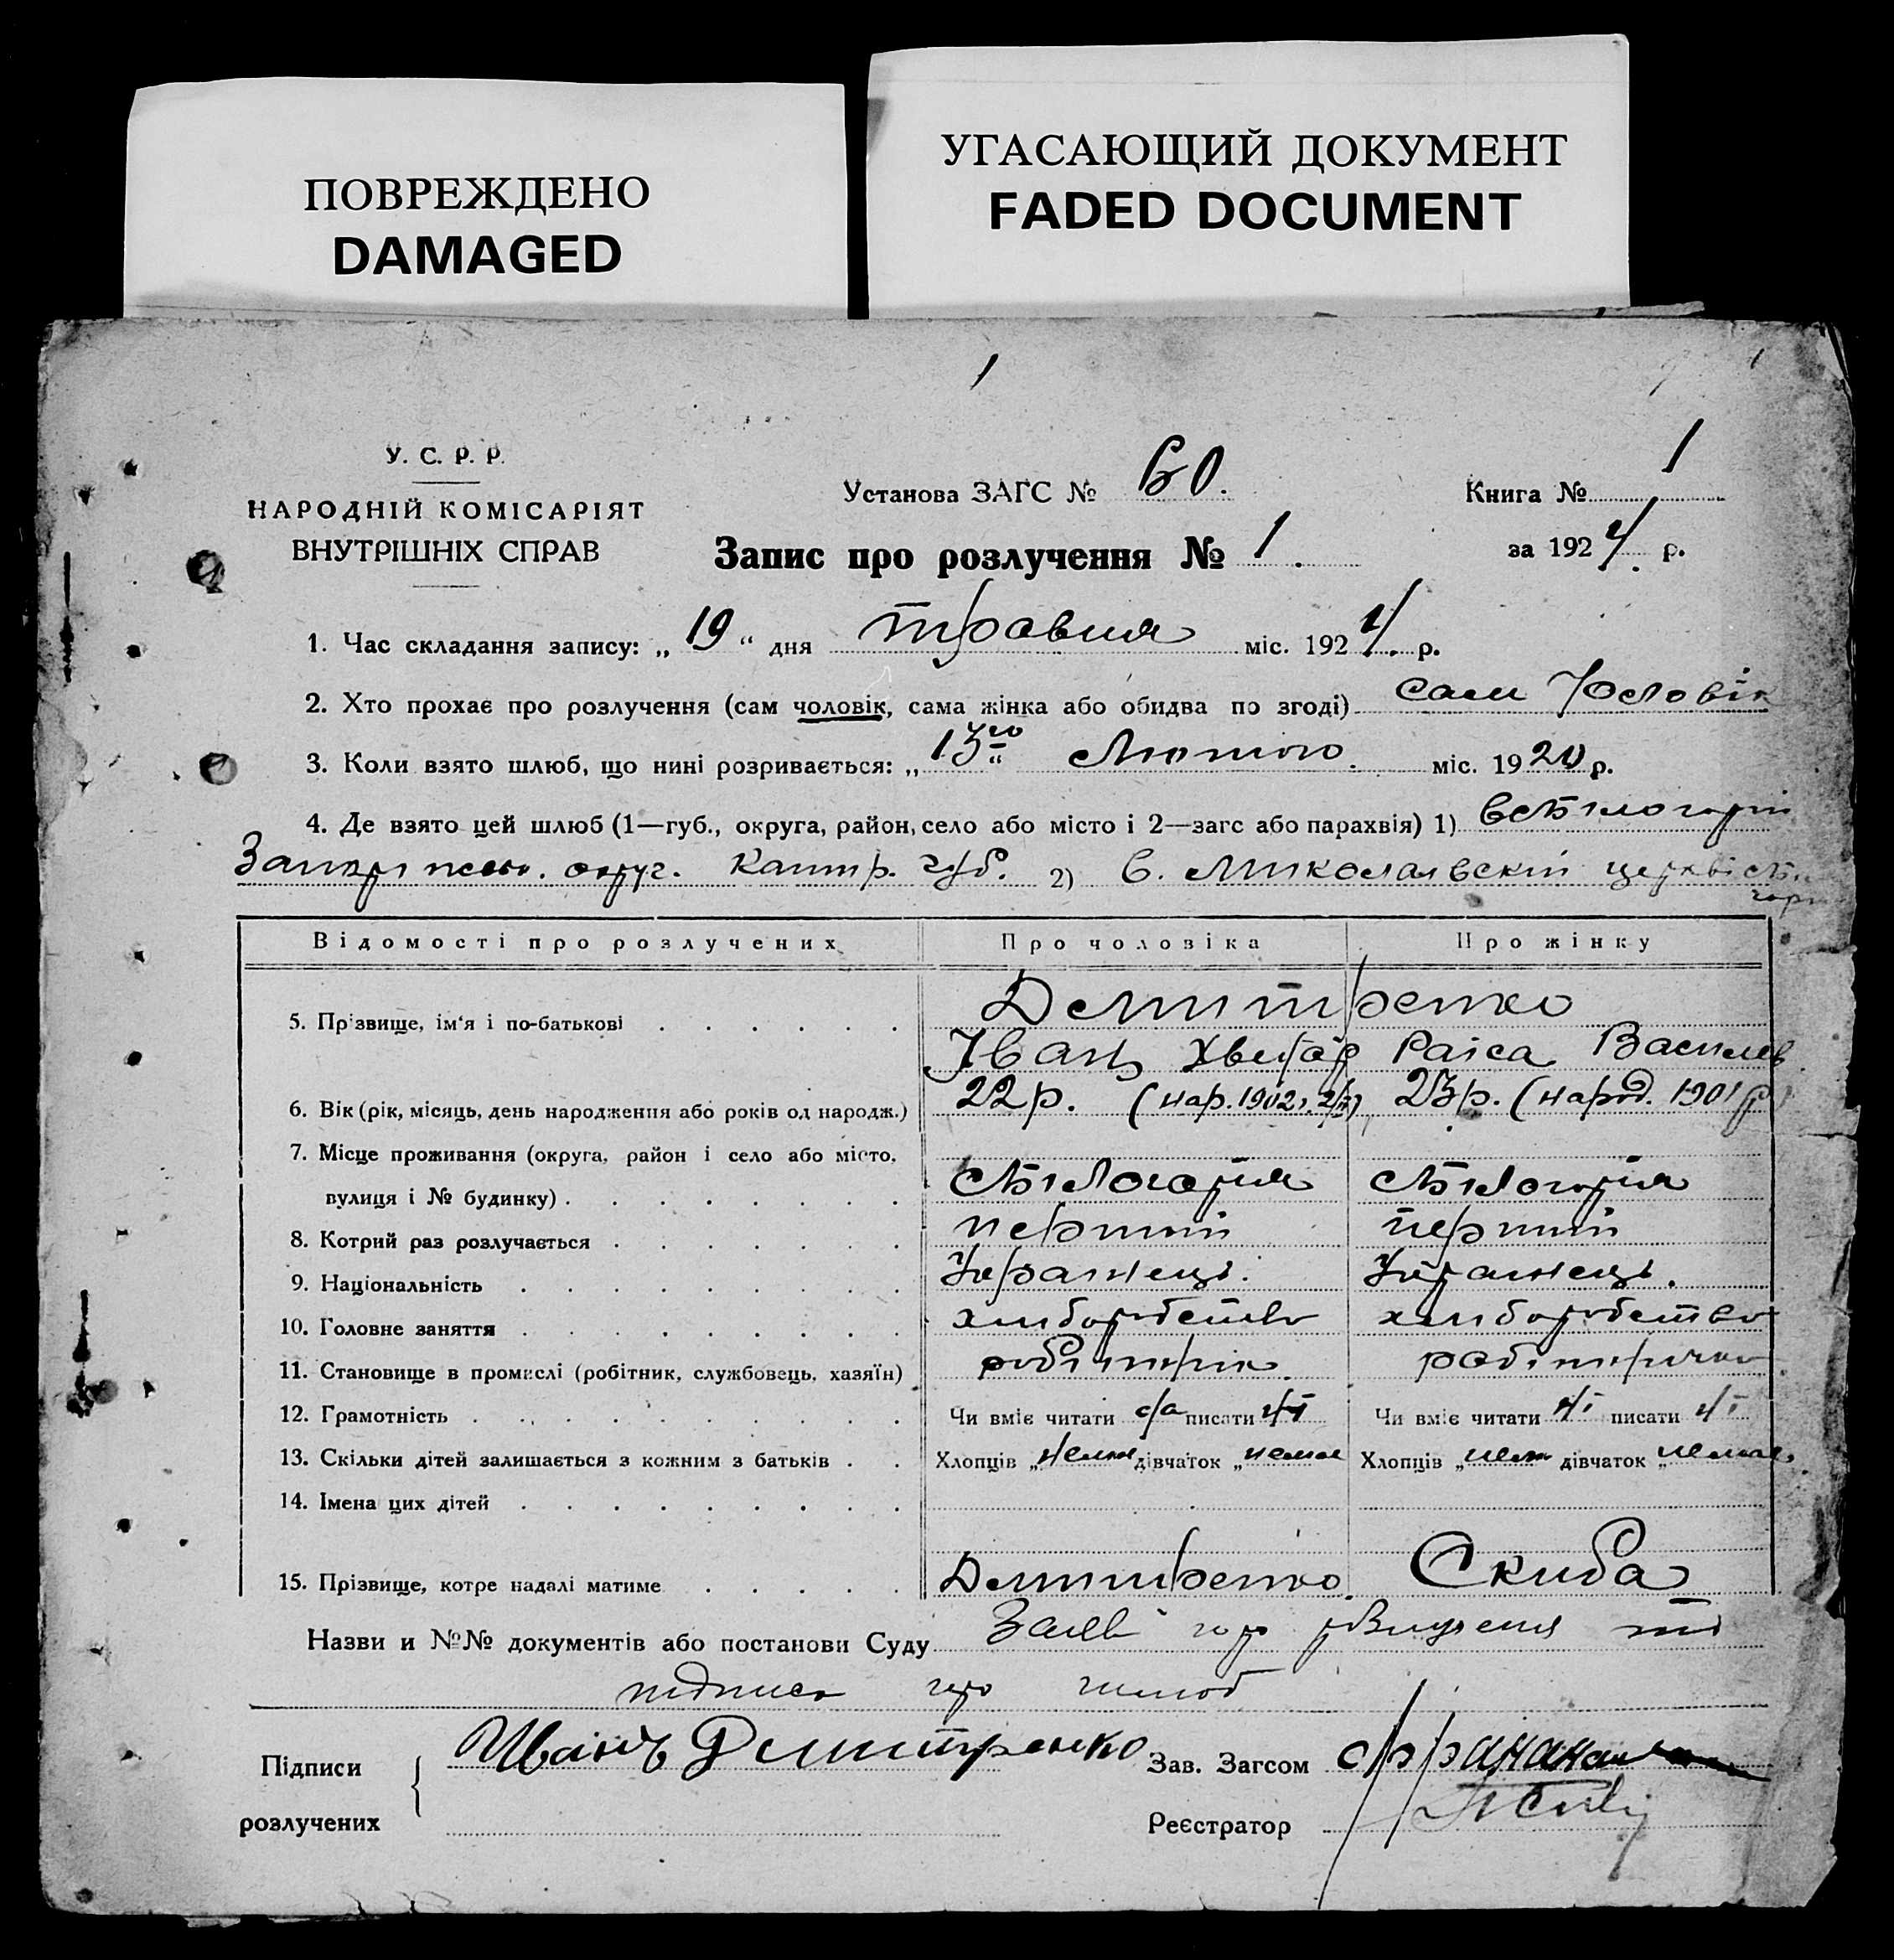 ПОВРЕЖДЕНО
DAMAGED
УГАСАЮЩИЙ ДОКУМЕНТ
FADED DOCUMENT
1
У. С. Р. Р.
НАРОДНІЙ КОМІСАРІЯТ
ВНУТРІШНІХ СПРАВ
Установа ЗАГС № 60.
Книга № 1
Запис про розлучення № 1.
за 1924 р.
1. Час складання запису: „19“ дня травня міс. 1924. р.
2. Хто прохає про розлучення (сам чоловік, сама жінка або обидва по згоді) сам Чоловік
3. Коли взято шлюб, що нині розривається: „13го“ Лютого. міс. 1920 р.
4. Де взято цей шлюб (1—губ., округа, район, село або місто і 2—загс або парахвія) 1)
округ. Катер. губ. 2) В. Миколаявскій церкві
Відомості про розлучених Про чоловіка Про жінку
5. Прізвище, ім‘я і по-батькові Демитренко
Івань Хведор Раїса Василев
6. Вік (рік, місяць, день народження або років од народж.) 22 р. (нар. 1902 23 р. (народ. 1901 р
7. Місце проживання (округа, район і село або місто,
вулиця і № будинку) Білогорія Білогорія
8. Котрий раз розлучається перший перший
9. Національність Українець. Українець.
10. Головне заняття хліборобство хліборобство
11. Становище в промислі (робітник, службовець, хазяїн) робітник. робітничка
12. Грамотність Чи вміє читати писати ні Чи вміє читати ні писати ні
13. Скільки дітей залишається з кожним з батьків Хлопців „нема дівчаток „немає Хлопців „нема дівчаток „немає.
14. Імена цих дітей
15. Прізвище, котре надалі матиме Демитренко. Скиба
Назви и №№ документів або постанови Суду Заява про розлученя та
підписка про шлюб
Підписи
розлучених
Иванъ Демитренко
Зав. Загсом
Реєстратор